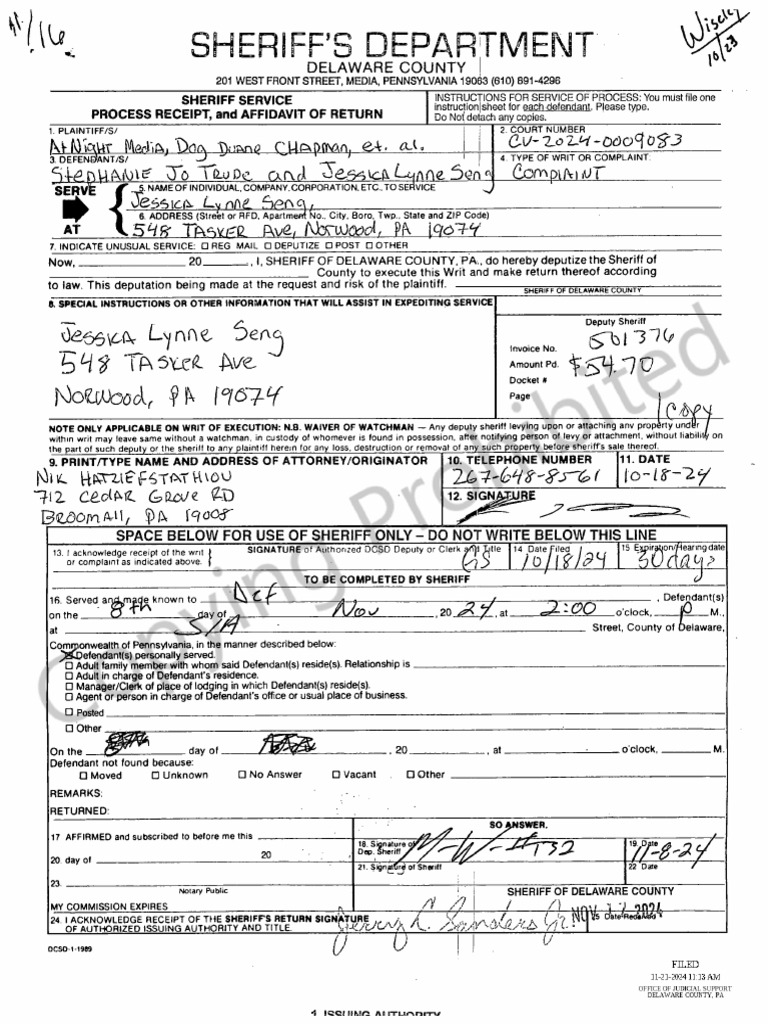 Wisely
10/23
SHERIFF'S DEPARTMENT
DELAWARE COUNTY
201 WEST FRONT STREET, MEDIA, PENNSYLVANIA 19063 (610) 891-4296
SHERIFF SERVICE
PROCESS RECEIPT, and AFFIDAVIT OF RETURN
INSTRUCTIONS FOR SERVICE OF PROCESS: You must file one
instruction sheet for each defendant. Please type.
Do Not detach any copies.
1. PLAINTIFF/S/
AtNight Media, Dog Duane CHAPMAN, et. al.
2. COURT NUMBER
CV-2024-0009083
3. DEFENDANT/S/
STEPHANIE Jo TRUDE and Jessica Lynne Seng
4. TYPE OF WRIT OR COMPLAINT
COMPLAINT
SERVE
AT
5. NAME OF INDIVIDUAL, COMPANY, CORPORATION, ETC. TO SERVICE
Jessica Lynne Seng,
6. ADDRESS (Street or RFD, Apartment No., City, Boro, Twp., State and ZIP Code)
548 TASKER Ave, Norwood, PA 19074
7. INDICATE UNUSUAL SERVICE: ☐ REG MAIL ☐ DEPUTIZE ☐ POST ☐ OTHER
Now, 20 , I, SHERIFF OF DELAWARE COUNTY, PA., do hereby deputize the Sheriff of
County to execute this Writ and make return thereof according
to law. This deputation being made at the request and risk of the plaintiff.
SHERIFF OF DELAWARE COUNTY
8. SPECIAL INSTRUCTIONS OR OTHER INFORMATION THAT WILL ASSIST IN EXPEDITING SERVICE
Jessica Lynne Seng
548 TASKER Ave
Norwood, PA 19074
Deputy Sheriff
Invoice No. 501376
Amount Pd. $54.70
Docket #
Page
1 Copy
NOTE ONLY APPLICABLE ON WRIT OF EXECUTION: N.B. WAIVER OF WATCHMAN — Any deputy sheriff levying upon or attaching any property under
within writ may leave same without a watchman, in custody of whomever is found in possession, after notifying person of levy or attachment, without liability on
the part of such deputy or the sheriff to any plaintiff herein for any loss, destruction or removal of any such property before sheriff's sale thereof.
9. PRINT/TYPE NAME AND ADDRESS OF ATTORNEY/ORIGINATOR
Nik HATZIEFSTATHIOU
712 Cedar Grove RD
Broomall, PA 19008
10. TELEPHONE NUMBER
267-648-8561
11. DATE
10-18-24
12. SIGNATURE
SPACE BELOW FOR USE OF SHERIFF ONLY – DO NOT WRITE BELOW THIS LINE
13. I acknowledge receipt of the writ
or complaint as indicated above.
SIGNATURE of Authorized DCSD Deputy or Clerk and Title
GS
14 Date Filed
10/18/24
15 Expiration/Hearing date
30 days
TO BE COMPLETED BY SHERIFF
16. Served and made known to Def , Defendant(s)
on the 8th day of Nov , 20 24, at 2:00 o'clock, P M.,
at S/A Street, County of Delaware,
Commonwealth of Pennsylvania, in the manner described below:
☒ Defendant(s) personally served.
☐ Adult family member with whom said Defendant(s) reside(s). Relationship is
☐ Adult in charge of Defendant's residence.
☐ Manager/Clerk of place of lodging in which Defendant(s) reside(s).
☐ Agent or person in charge of Defendant's office or usual place of business.
☐ Posted
☐ Other
On the day of , 20 , at o'clock, M.
Defendant not found because:
☐ Moved ☐ Unknown ☐ No Answer ☐ Vacant ☐ Other
REMARKS:
RETURNED:
SO ANSWER.
17 AFFIRMED and subscribed to before me this
18. Signature of
Dep. Sheriff
19. Date
11-8-24
20. day of 20
21. Signature of Sheriff
22 Date
23.
Notary Public
SHERIFF OF DELAWARE COUNTY
MY COMMISSION EXPIRES
24. I ACKNOWLEDGE RECEIPT OF THE SHERIFF'S RETURN SIGNATURE
OF AUTHORIZED ISSUING AUTHORITY AND TITLE.
Jerry L. Sanders Jr.
NOV 2024
25 Date Received
DCSD-1-1989
FILED
11-21-2024 11:13 AM
OFFICE OF JUDICIAL SUPPORT
DELAWARE COUNTY, PA
1. ISSUING AUTHORITY
Copying Prohibited